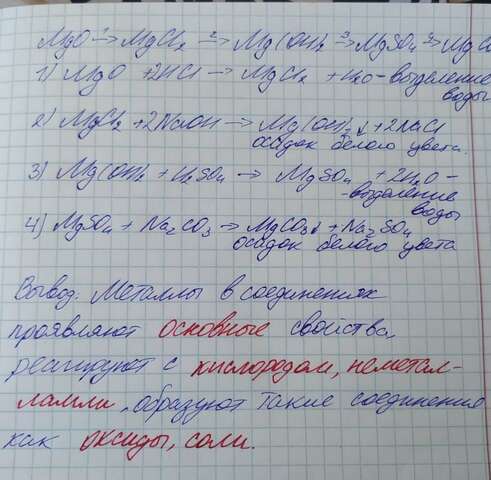 MgO ¹→ MgCl₂ ²→ Mg(OH)₂ ³→ MgSO₄ ⁴→ MgCO
1) MgO + 2HCl → MgCl₂ + H₂O - выделение
воды
2) MgCl₂ + 2NaOH → Mg(OH)₂↓ + 2NaCl
осадок белого цвета.
3) Mg(OH)₂ + H₂SO₄ → MgSO₄ + 2H₂O -
- выделение
воды
4) MgSO₄ + Na₂CO₃ → MgCO₃↓ + Na₂SO₄
осадок белого цвета
Вывод: Металлы в соединениях
проявляют основные свойства,
реагируют с кислородом, неметал-
лами, образуют такие соединения
как оксиды, соли.